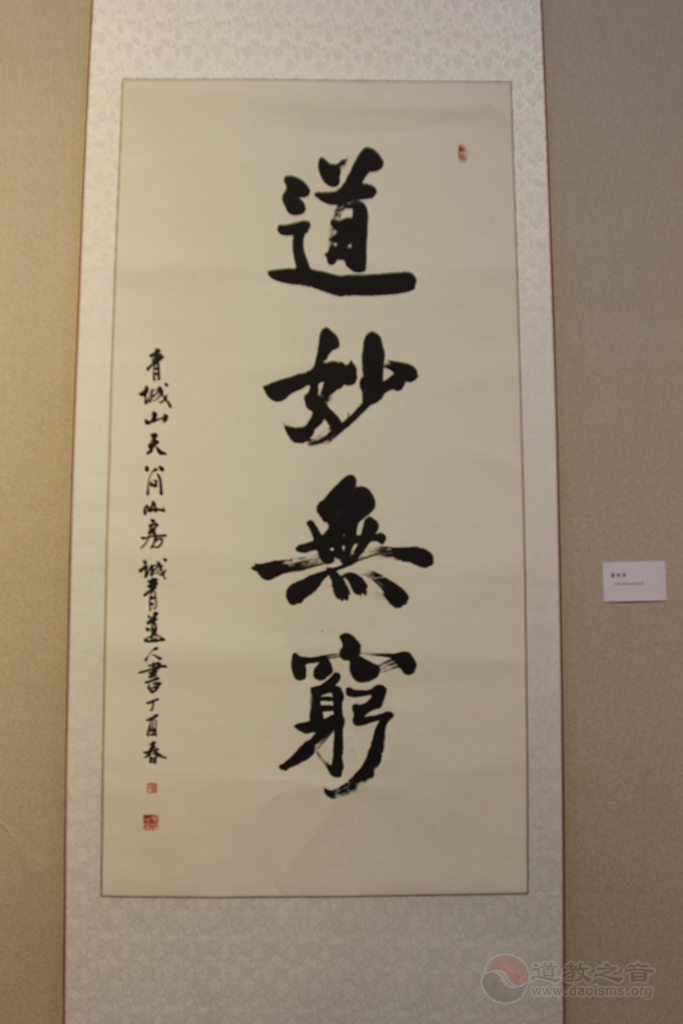 道妙無窮
青城山天简山房誠青道人書丁酉春
道教之音
www.daoisms.org